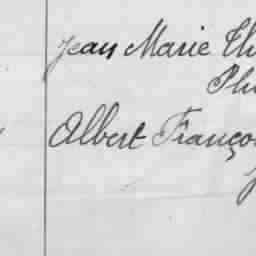 Jean Marie Th
Ph
Albert Franço